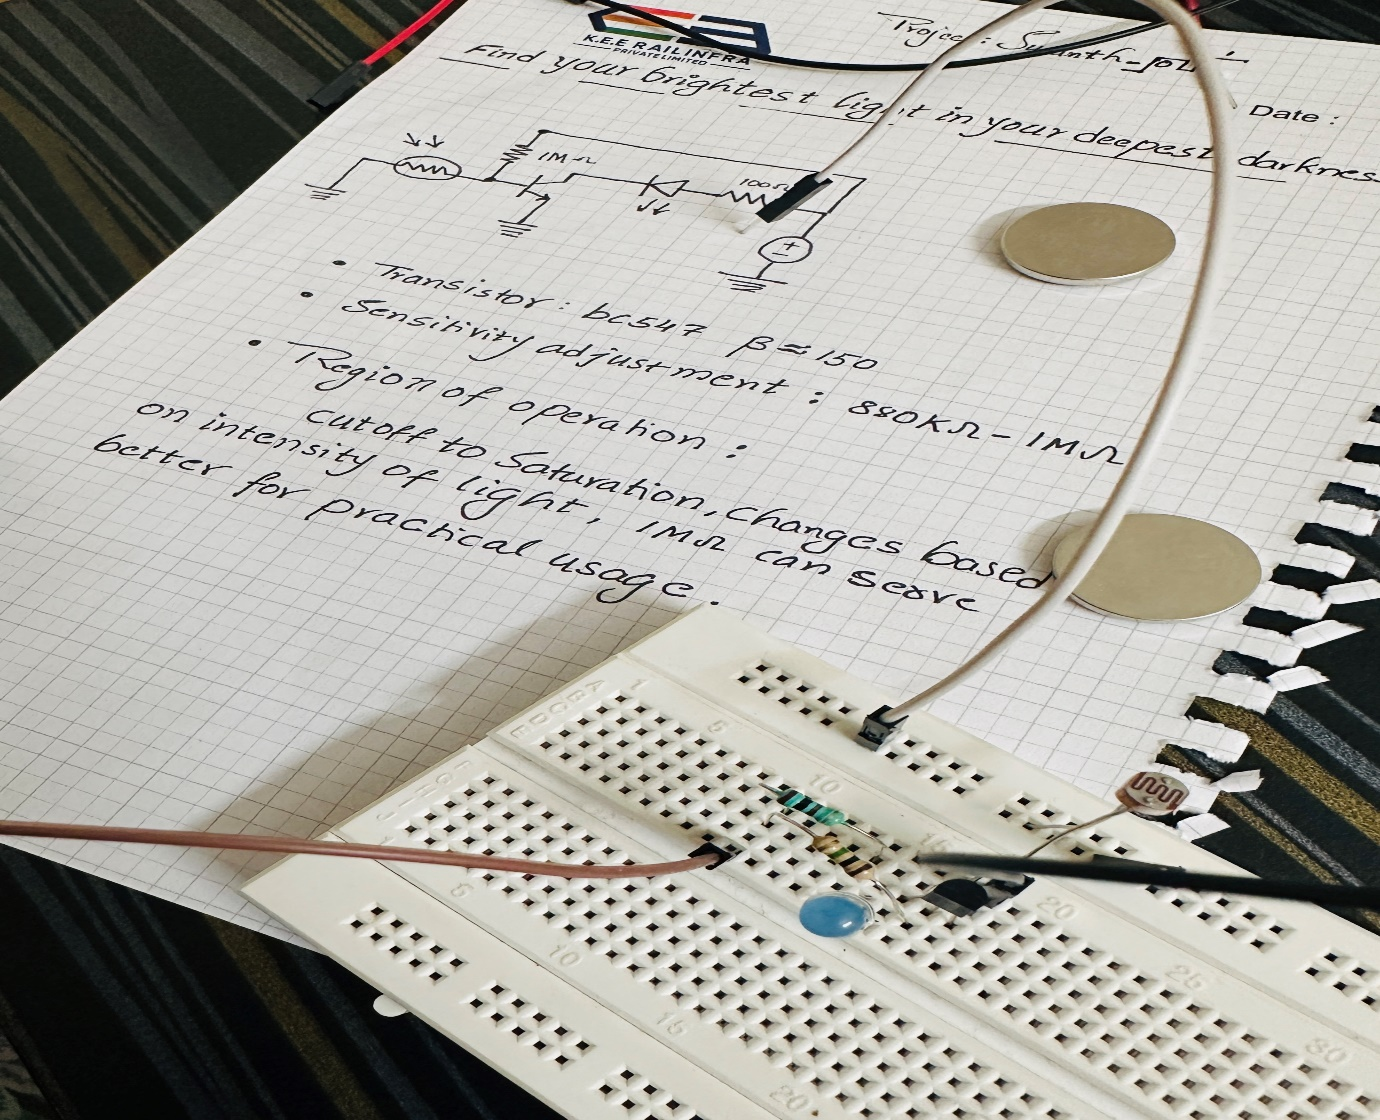 K.E.E RAILINFRA
PRIVATE LIMITED
Project : Sumanth_
Date :
Find your brightest light in your deepest darkness
1MΩ
100Ω
• Transistor : bc547 β ≈ 150
• Sensitivity adjustment : 880KΩ - 1MΩ
• Region of operation :
cutoff to saturation, changes based
on intensity of light, 1MΩ can serve
better for practical usage.
A
B
C
D
E
1
5
10
15
20
25
30
F
5
10
15
20